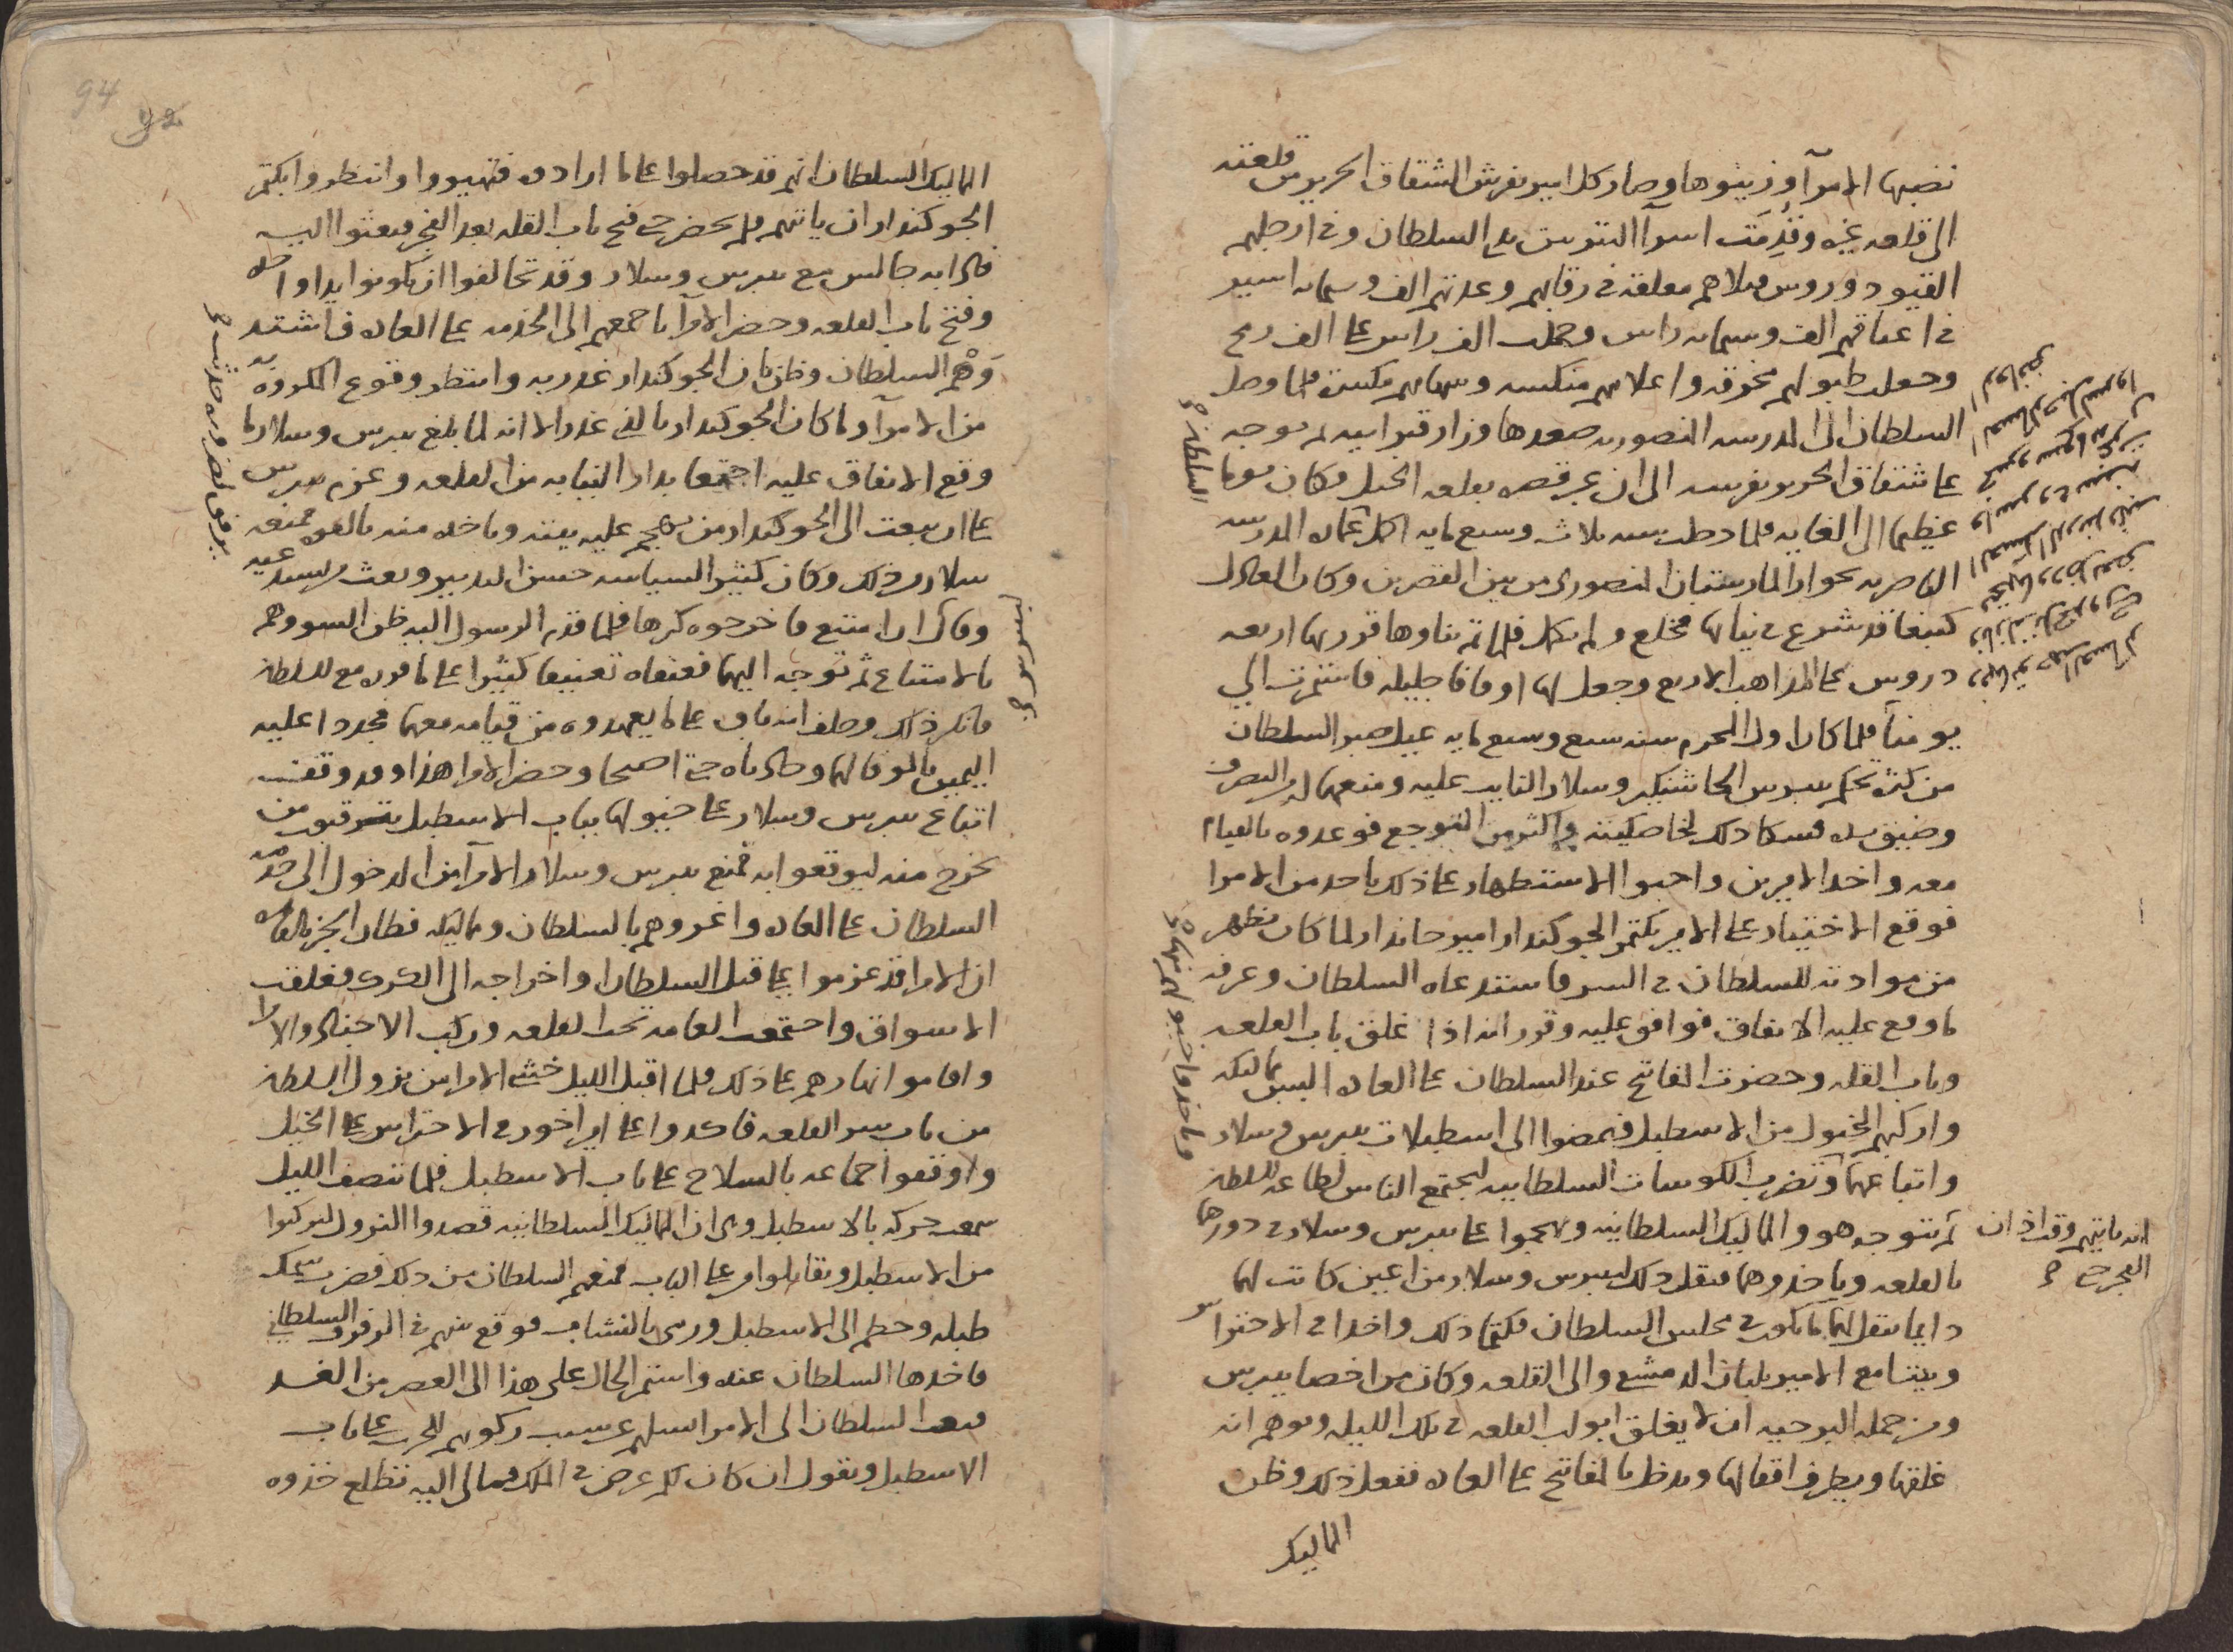 نصبها الامرآ وزينوها وصار كل امير يفرش الشقاق الحرير من قلعته
الى قلعه غيره وقُدِمَت اسرآ التتر بين يدى السلطان وفى ارجلهم
القيود وروس قتلاهم معلقه فى رقابهم وعدتهم الف وستمايه اسير
فى اعناقهم الف وستمايه راس وحملت الف راس على الف رمح
وجعلت طبولهم مخرقه واعلامهم منكسه فلما وصل
السلطان الى المدرسه المنصوريه صعدها وزار قبر ابيه ثم توجه
على شقاق الحرير بفرسه الى ان عبر قصره بقلعه الجبل فكان يوما
عظيما الى الغايه فلما دخلت سنه ثلاث وسبع مايه اكمل عماره المدرسه
الناصريه بجوار المارستان المنصورى من بين القصرين وكان العادل
كتبغا قد شرع فى بنايها فخلع ولم تكمل فلما تم بناوها قرر بها اربعه
دروس على المذاهب الاربع وجعل لها اوقافا جليله فاستمرت الى
يومنا فلما كان اول المحرم سنه سبع وسبع مايه عيل صبر السلطان
من كثره تحكم بيبرس الجاشنكير وسلار النايب عليه ومنعهما له من التصرف
وضيق يده فشكا ذلك لخاصكيته واكثر من التوجع فوعدوه بالقيام
معه واخذ الاميرين واحبوا الاستظهار على ذلك باحد من الامرا
فوقع الاختيار على الامير بكتمر الجوكندار امير جاندار لما كان يظهر
من موادته للسلطان فى السر فاستدعاه السلطان وعرفه
ما وقع عليه الاتفاق فوافق عليه وقرر انه اذا اغلق باب القلعه
وباب القله وحضرت المفاتيح عند السلطان على العاده البس مماليكه
واركبهم الخيول من الاسطبل فيمضوا الى اسطبلات بيبرس وسلار
واتباعهما وتضرب الكوسات السلطانيه ليجتمع الناس لطاعه السلطان
ثم يتوجه هو والمماليك السلطانيه ويهجموا على بيبرس وسلار فى دورهما
بالقلعه وياخذوهما فنقل ذلك لبيبرس وسلار من اعين كانت لهما
دايما تنقل لهما ما يكون فى مجلس السلطان فكتما ذلك واخذا فى الاحتراس
وبيتا مع الامير بلبان الدمشقى والى القلعه وكان من اخصا بيبرس
ومن جمله البرجيه ان لا يغلق ابواب القلعه فى تلك الليله ويوهم انه
غلقها ويطرف اقفالها ويدخل بالمفاتيح على العاده ففعل ذلك وظن
المماليك
السلطنه
وياخذ واحبوا لهم نهاره
انه ياتيهم وقت اذان
الفجر حتى
94
92
المماليك السلطان انهم قد حصلوا على ما ارادوه فتهيووا وانتظروا بكتمر
الجوكندار ان ياتيهم فلم يحضر حتى فتح باب القله بعد الفجر فبعثوا اليه
فاذا به جالس مع بيبرس وسلار وقد تحالفوا ان يكونوا يدا واحده
وفتح باب القلعه وحضر الامرآ باجمعهم الى الخدمه على العاده فاشتد
وَهْم السلطان وظن بان الجوكندار غدر به وانتظر وقوع المكروه به
من الامرآ وما كان الجوكندار بالذى غدر الا انه لما بلغ بيبرس وسلار ما
وقع الاتفاق عليه اجتمعا بدار النيابه من القلعه وعزم بيبرس
على ان يبعث الى الجوكندار من يهجم عليه بيته وياخذه منه بالقوه فمنعه
سلار من ذلك وكان كثير السياسه حسن التدبير وبعث يستدعيه
وقال ان امتنع فاخرجوه كرها فلما قدم الرسول اليه ظن السو وهم
بالامتناع ثم توجه اليهما فعنفاه تعنيفا كثيرا على ما قرره مع السلطان
فانكر ذلك وحلف انه باق على ما يعهدوه من قيامه معهما فجددا عليه
اليمين بالوفا لهما وحالاه حتى اصبحا وحضر الامرا هذا وقد وقفت
اتباع بيبرس وسلار على خيولها بباب الاسطبل يترقبون من
يخرج منه ليوقعوا به فمنع بيبرس وسلار الامرآ من الدخول الى خدمه
السلطان على العاده واغروهم بالسلطان ومماليكه فطار الخبر بالقاهره
ان الامرا قد عزموا على قتل السلطان او اخراجه الى الكرك فغلقت
الاسواق واجتمعت العامه تحت القلعه وركب الاجناد والامرا
واقاموا نهارهم على ذلك فلما اقبل الليل خشى الامرا من نزول السلطان
من باب سر القلعه فاكدوا على امير اخور فى الاحتراس على الخيل
واوقفوا جماعه بالسلاح على باب الاسطبل فلما تنصف الليل
سمعت حركه بالاسطبل وهى ان المماليك السلطانيه قصدوا النزول ليركبوا
من الاسطبل ويقاتلوا من على الباب فمنعهم السلطان من ذلك فضرب سمك
طبله وحطم الى الاسطبل ورمى بالنشاب فوقع سهم فى الرفرف السلطانى
فاخذها السلطان عنده واستمر الحال على هذا الى العصر من الغد
فبعث السلطان الى الامرا يسالهم عن سبب ركوبهم للحرب على باب
الاسطبل ويقول ان كان لكم غرض فى الملك فما لى اليه تطلع خذوه
برفق لضروره حدثت
لبيبرس